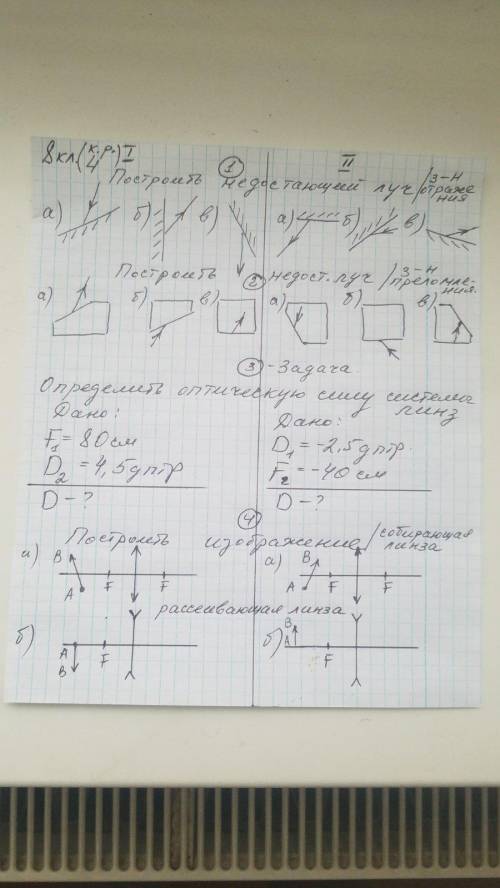 8кл. (к.р. 4) I
II
1
Построить недостающий луч /з-н отражения
а) б) в) а) б) в)
Построить 2 недост. луч /з-н преломления.
а) б) в) а) б) в)
3 - Задача
Определить оптическую силу системы линз
Дано:
F₁ = 80 см
D₂ = 4,5 дптр
D - ?
Дано:
D₁ = -2,5 дптр.
F₂ = -40 см
D - ?
4
Построить изображение /собирающая линза
а) B A F F
а) B A F F
рассеивающая линза
б) A B F
б) B A F